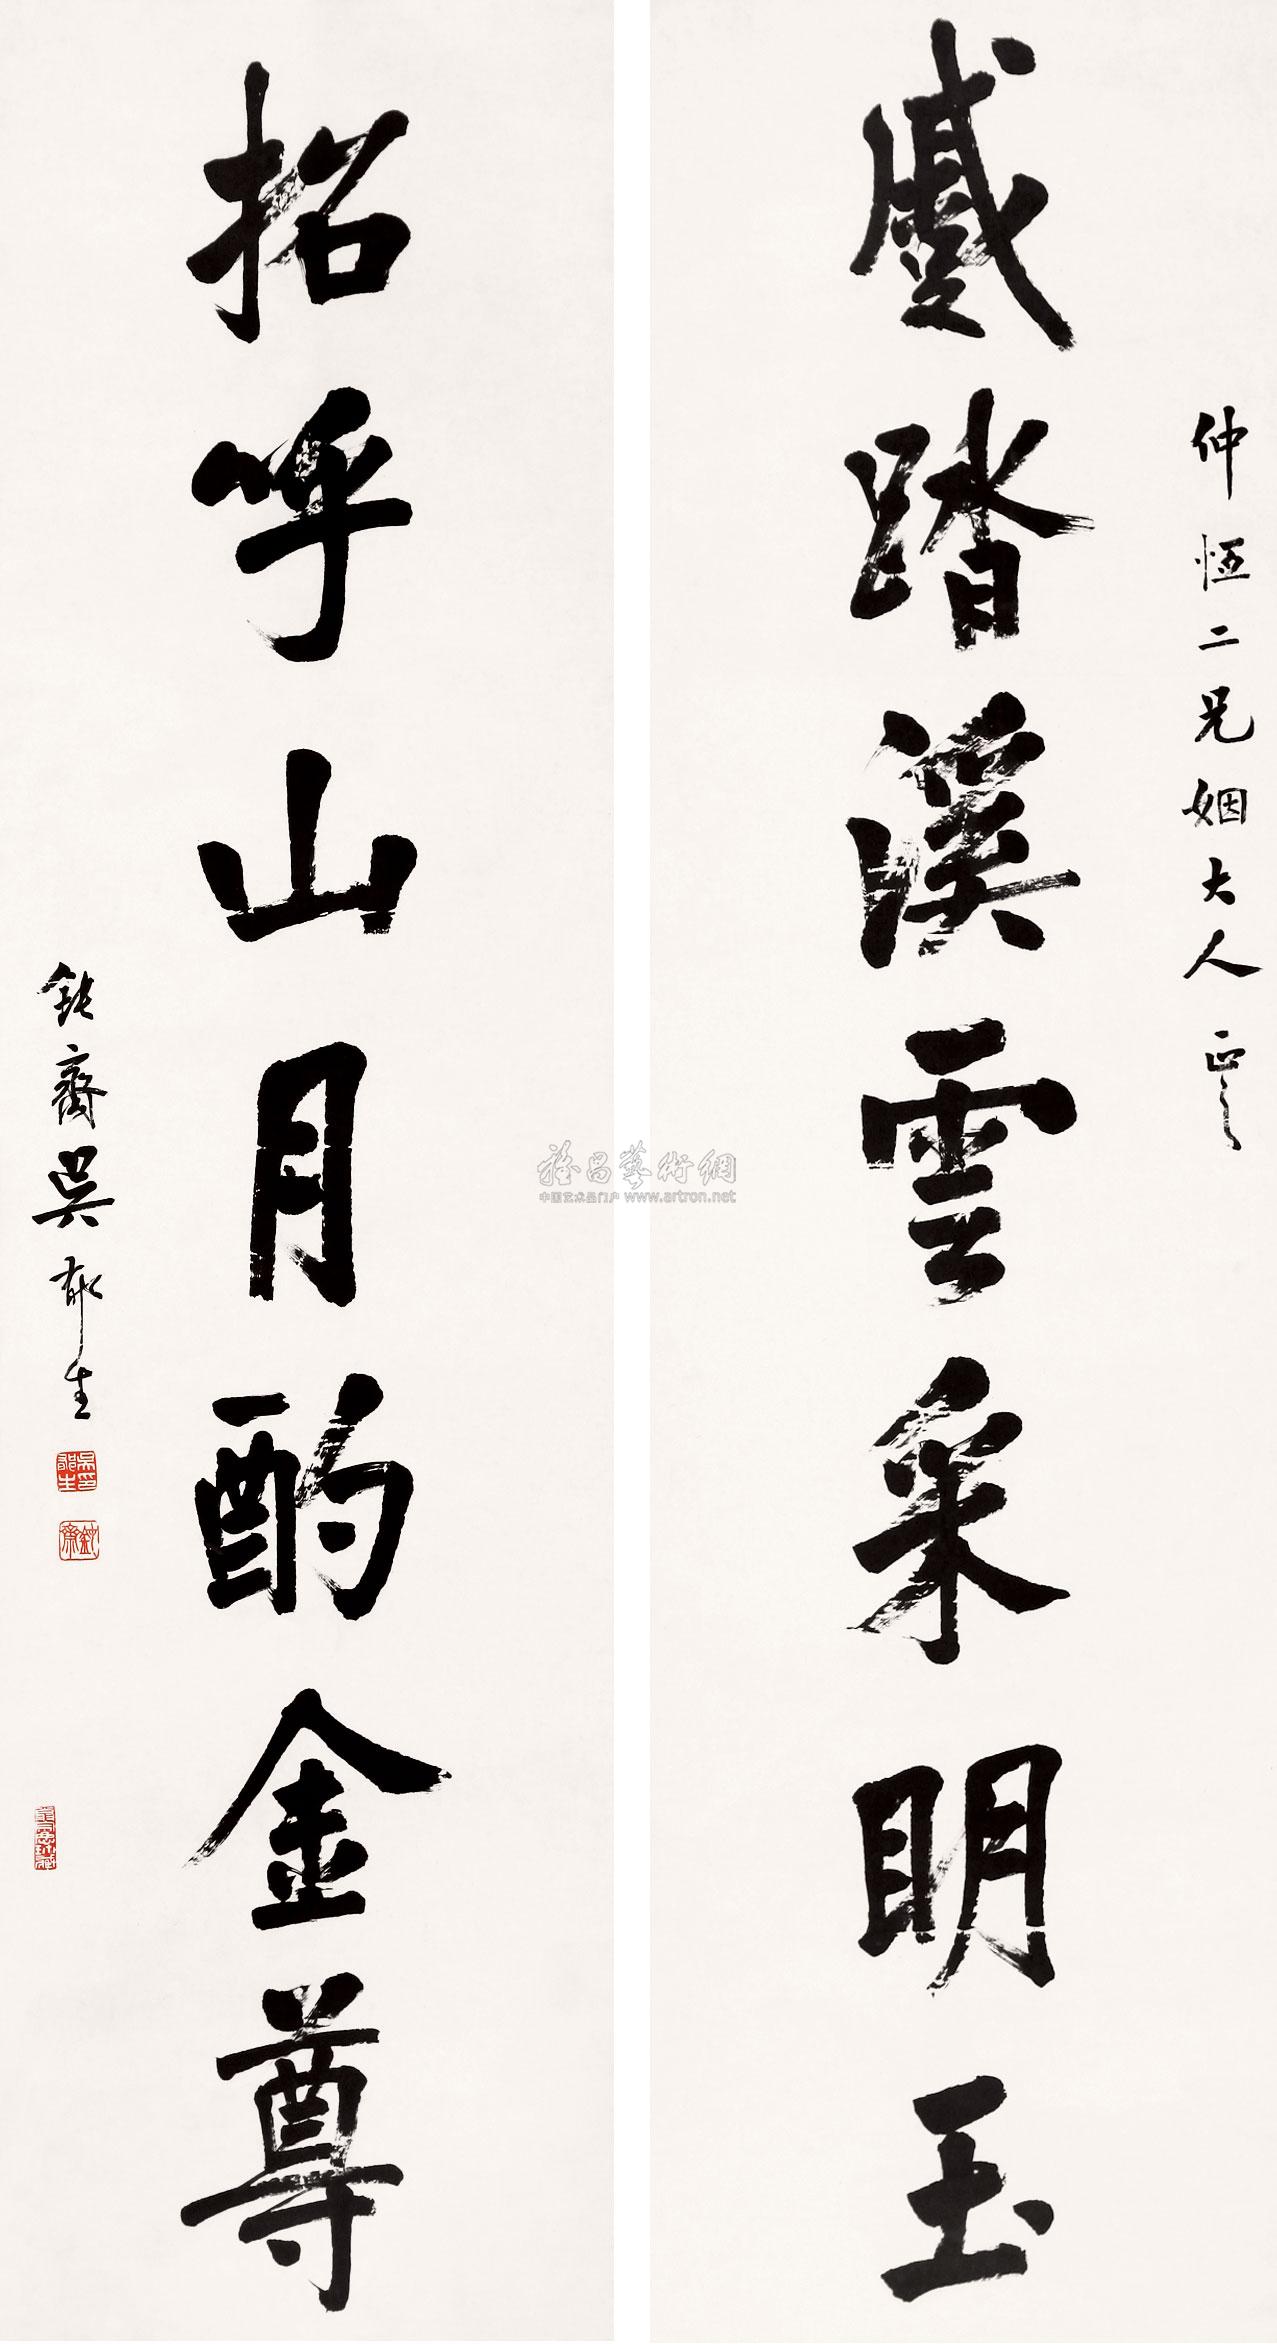 仲恆二兄姻大人正之
蹙踏溪雲采明玉
招呼山月酌金尊
鈍齋吳郁生
吳郁生印
鈍齋
雅昌藝術網
中国艺术品门户 www.artron.net